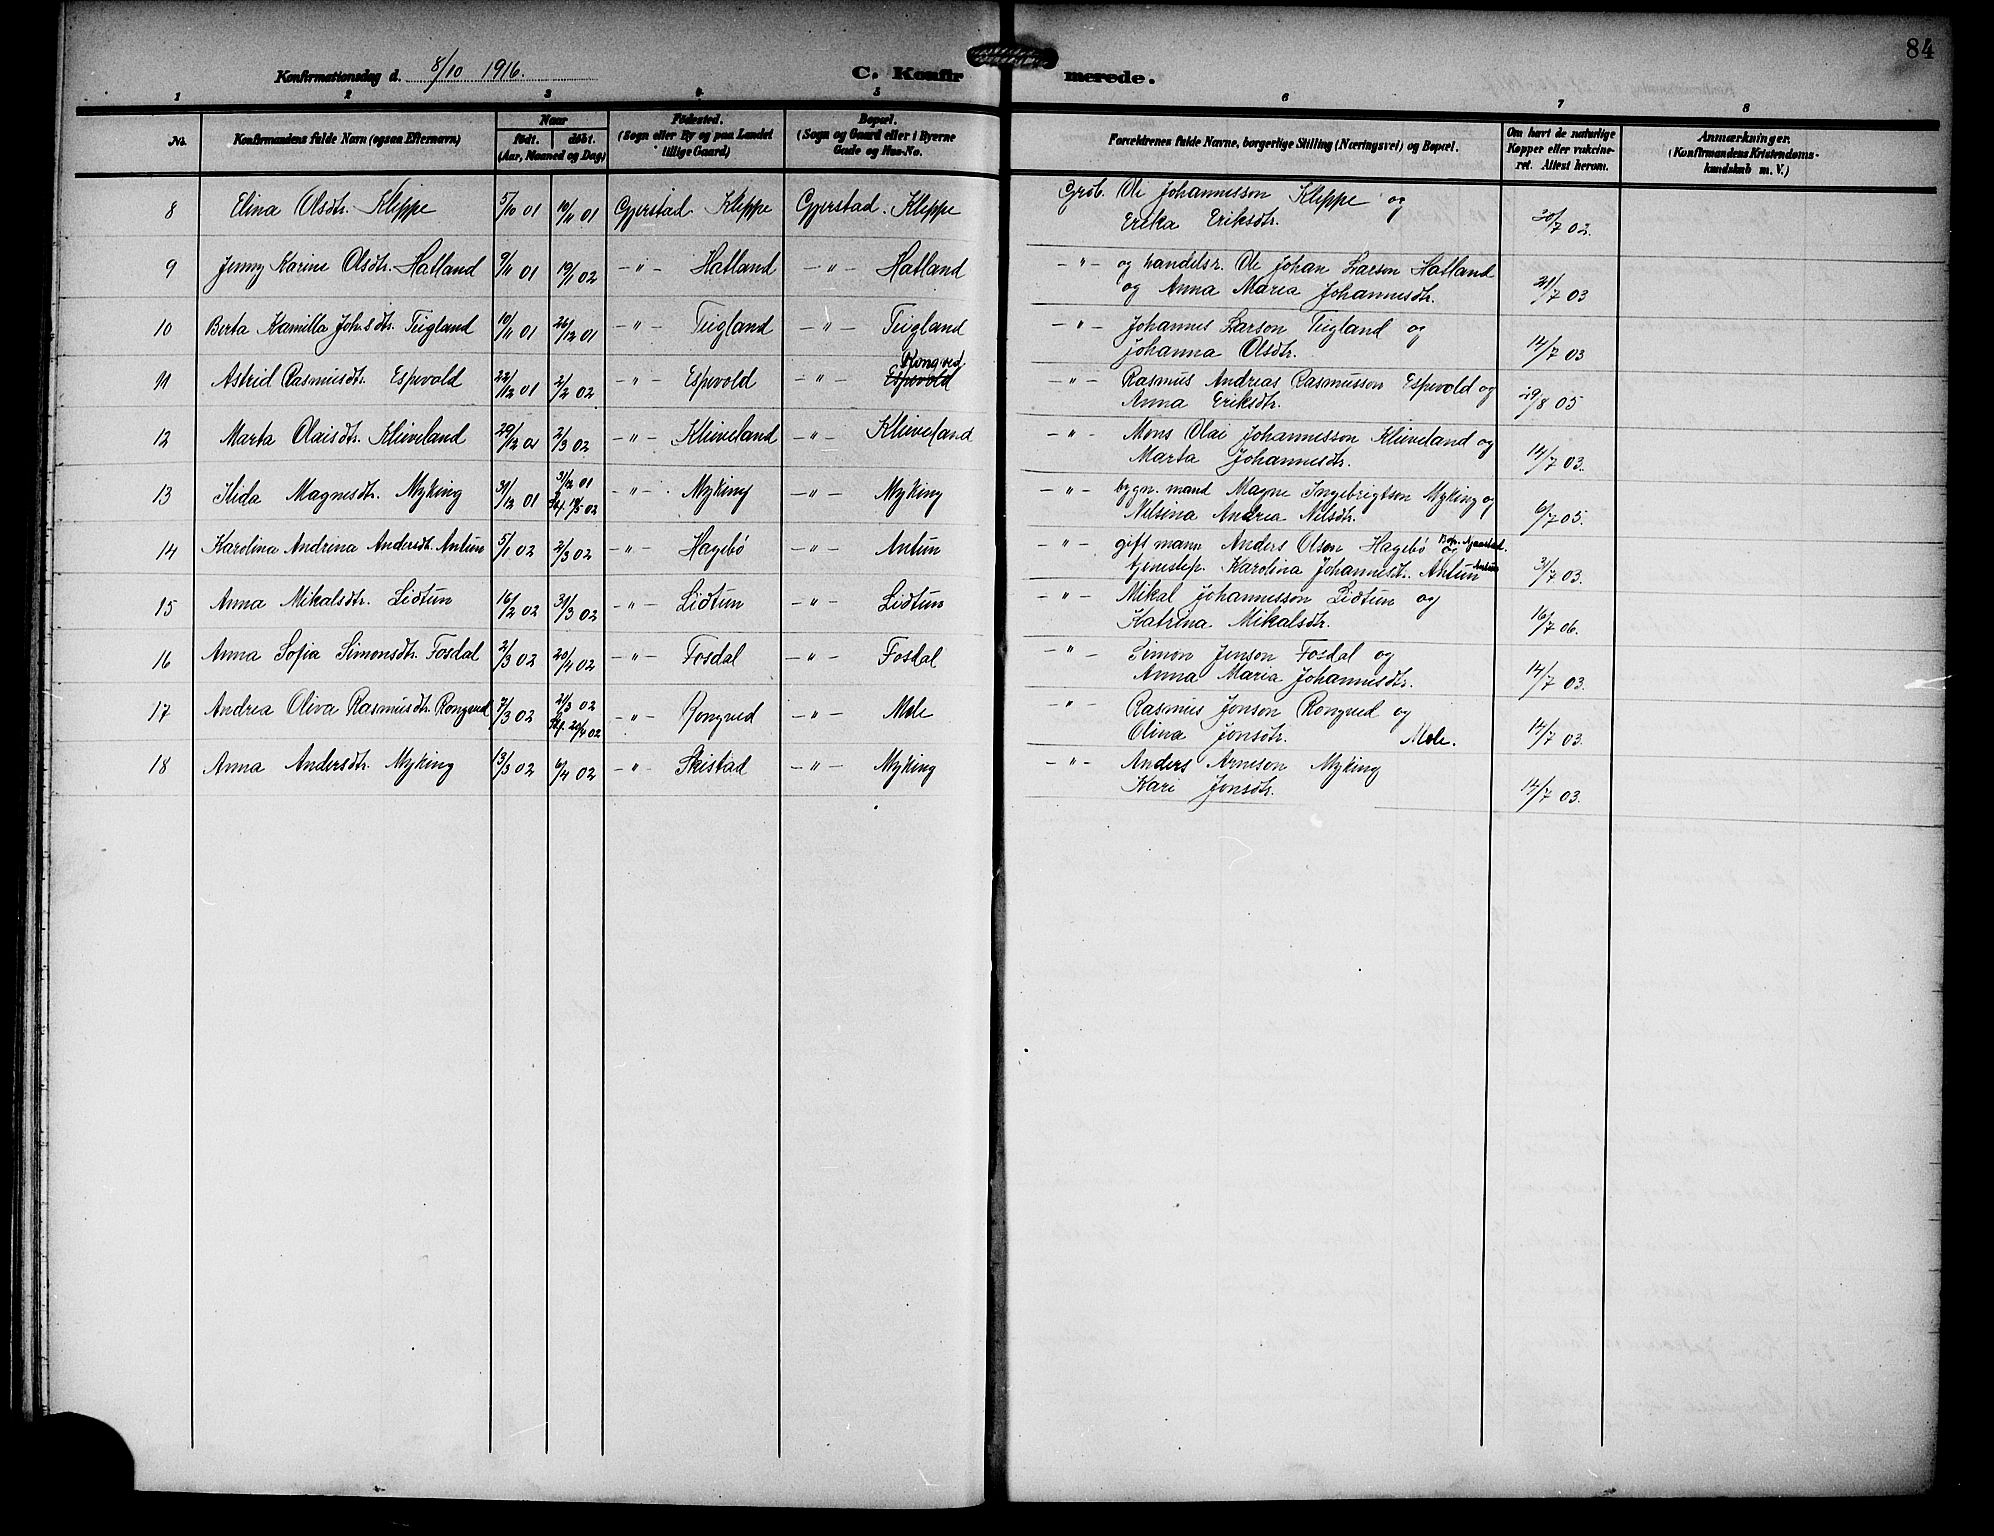 84
Konfirmationsdag d. 8/10 1916. C. Konfirmerede.
1 2 3 4 5 6 7 8
No. Konfirmandens fulde Navn (ogsaa Efternavn) Naar født. døbt. (Aar, Maaned og Dag) Fødested. (Sogn eller By og paa Landet tillige Gaard) Bopæl. (Sogn og Gaard eller i Byerne Gade og Hus-No. Forældrenes fulde Navne, borgerlige Stilling (Næringsvei) og Bopæl. Om havt de naturlige Kopper eller vakcineret. Attest herom. Anmærkninger. (Konfirmandens Kristendomskundskab m. V.)
8 Elina Olsdtr. Kleppe 5/10 01 10/11 01 Gjerstad Kleppe Gjerstad. Kleppe Grdb. Ole Johannesson Kleppe og
Erika Eriksdtr. 30/7 02.
9 Jenny Karine Olsdtr. Hatland 9/11 01 19/1 02 -"- Hatland -"- Hatland -"- og handelsr. Ole Johan Larson Hatland
og Anna Maria Johannesdtr. 21/7 03
10 Berta Kamilla Joh.sdtr. Teigland 10/11 01 26/12 01 -"- Teigland -"- Teigland -"- Johannes Larson Teigland og
Johanna Olsdtr. 14/7 03
Rongved
11 Astrid Rasmusdtr. Espevold 22/12 01 2/2 02 -"- Espevold -"- Espevold -"- Rasmus Andreas Rasmusson Espevold og
Anna Eriksdtr. 29/8 05
12 Marta Olaisdtr. Kleiveland 29/12 01 2/3 02 -"- Kleiveland -"- Kleiveland -"- Mons Olai Johannesson Kleiveland og
Marta Johannesdtr. 14/7 03.
13 Ilida Magnesdtr. Myking 31/12 01 31/12 01 19/5 02 -"- Myking -"- Myking -"- bygn. mand Magne Ingebrigtson Myking og
Nelsina Andrea Nilsdtr. 6/7 05.
14 Karolina Andrina Andersdtr. Antun 5/1 02 2/3 02 -"- Hagebø -"- Antun -"- gift mann Anders Olson Hagebø og
tjenestep. Karolina Johannesdtr. Antun 3/7 03.
15 Anna Mikalsdtr. Lidtun 16/2 02 31/3 02 -"- Lidtun -"- Lidtun -"- Mikal Johannesson Lidtun og
Katrina Mikalsdtr. 16/7 06.
16 Anna Sofia Simonsdtr. Fosdal 2/3 02 20/4 02 -"- Fosdal -"- Fosdal -"- Simon Jonson Fosdal og
Anna Maria Johannesdtr. 14/7 03.
17 Andrea Oliva Rasmusdtr. Rongved 7/3 02 21/3 02 20/4 02 -"- Rongved -"- Mele -"- Rasmus Jonson Rongved og
Olina Jonsdtr. Mele. 14/7 03.
18 Anna Andersdtr. Myking 13/3 02 6/4 02 -"- Skistad -"- Myking -"- Anders Arneson Myking
Kari Jonsdtr. 14/7 03.